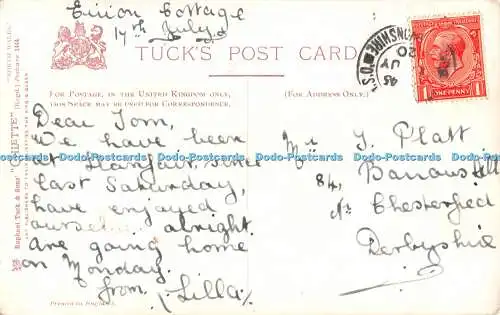 Einion Cottage
17th July
TUCK'S POST CARD
FOR POSTAGE, IN THE UNITED KINGDOM ONLY,
THIS SPACE MAY BE USED FOR CORRESPONDENCE.
(FOR ADDRESS ONLY.)
Dear Tom,
We have been
at Llanfair since
Last Saturday,
have enjoyed
ourselves alright.
are going home
on Monday.
from Lilla
Mr T. Platt
84,
Nr Chesterfield
Derbyshire
Printed in England.
Raphael Tuck & Sons' "OILETTE" [Regd.] Postcard 1444
"NORTH WALES."
ONE PENNY
JY
20
Dodo-Postcards Dodo-Postcards Dodo-Postcards Dodo-Postcards Dodo-Postcards